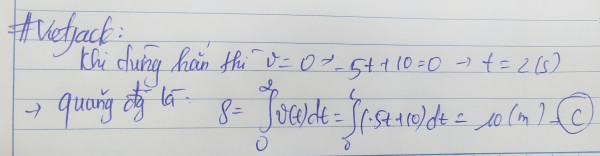 #Vietjack:
Khi dừng hẳn thì v = 0 → -5t+10=0 → t = 2(s)
→ quãng đg là: S = ∫₀² v(t)dt = ∫₀ (-5t+10)dt = 10 (m) → C